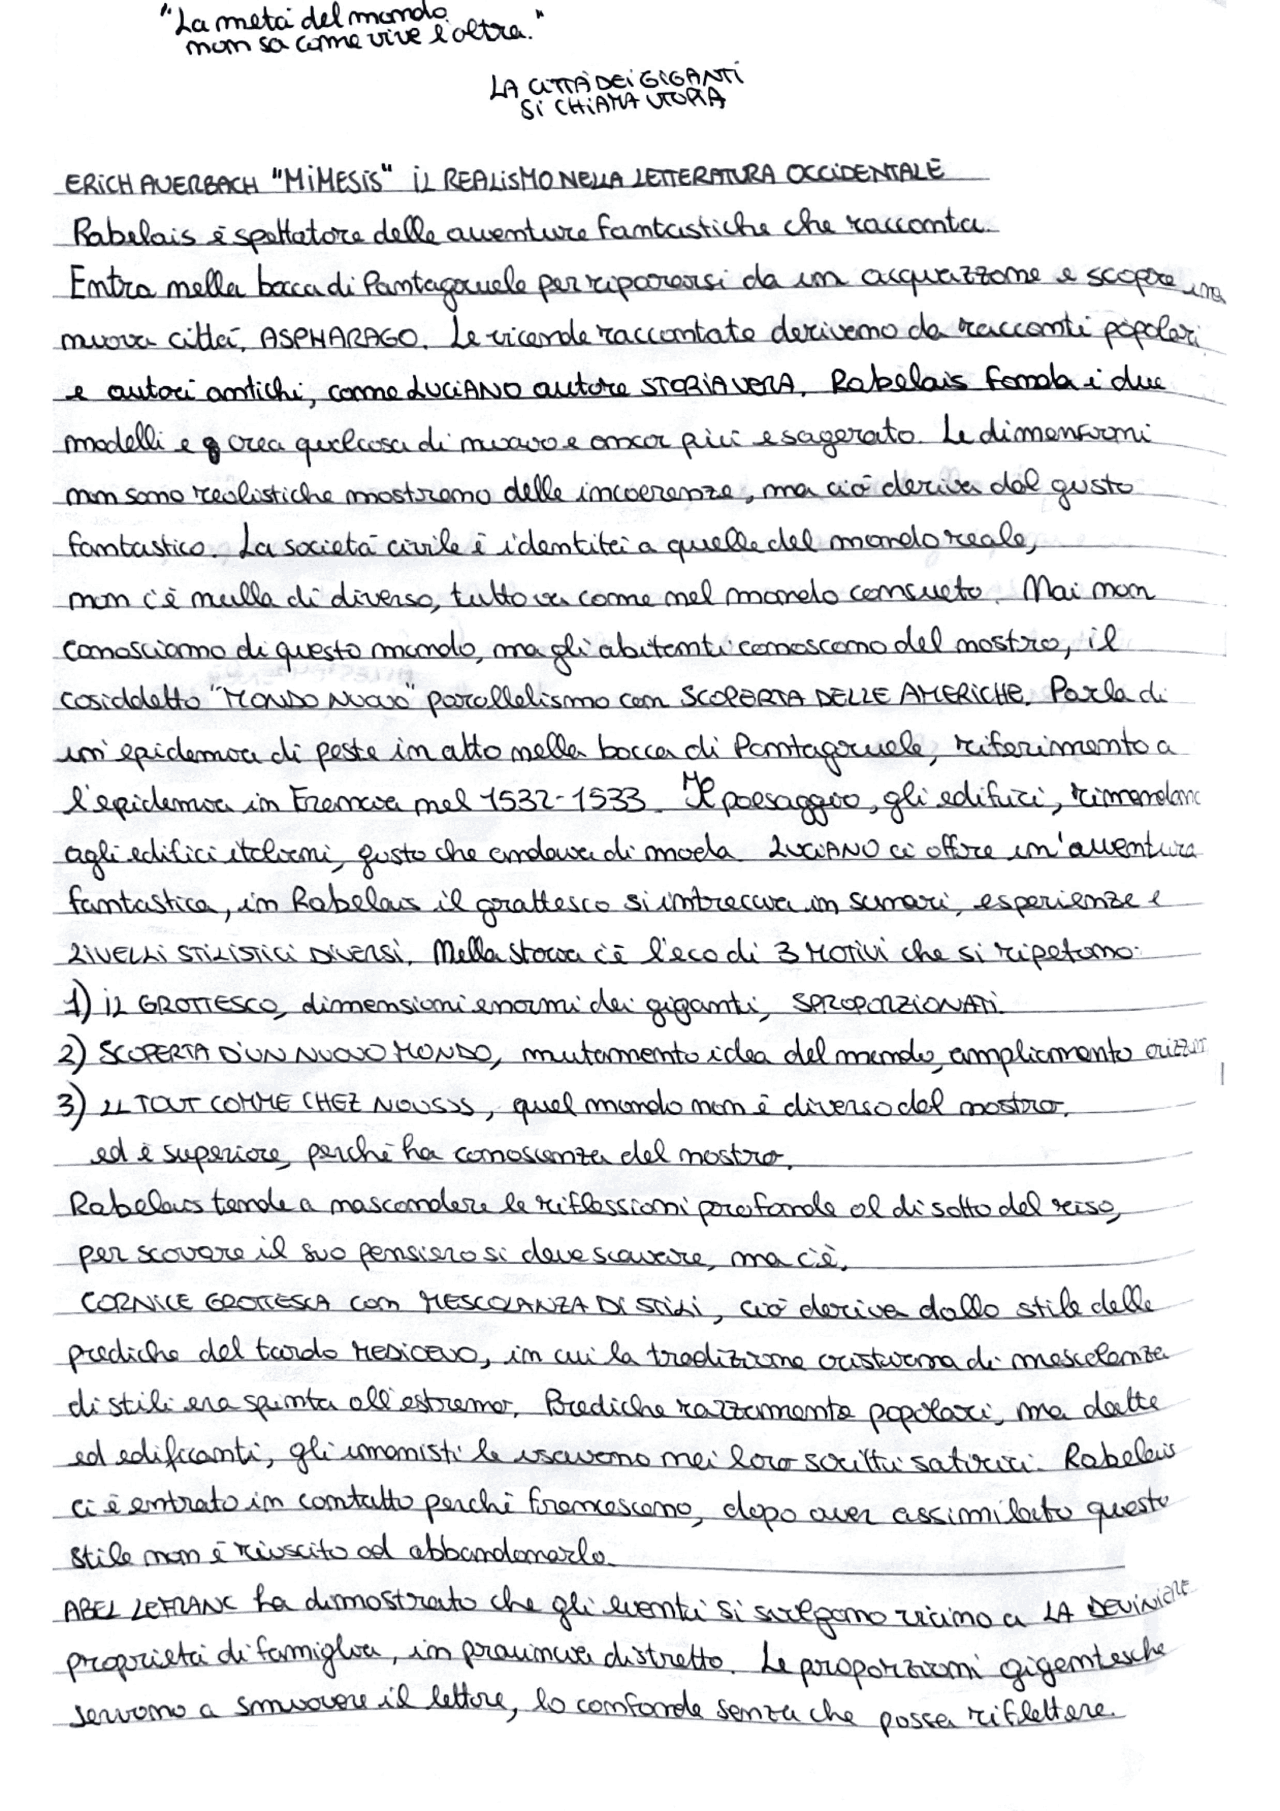 "La metà del mondo
non sa come vive l'altra."
LA CITTÀ DEI GIGANTI
SI CHIAMA UTOPIA
ERICH AUERBACH "MIMESIS" IL REALISMO NELLA LETTERATURA OCCIDENTALE
Rabelais è spettatore delle avventure fantastiche che racconta.
Entra nella bocca di Pantagruele per ripararsi da un acquazzone e scopre una
nuova città, ASPHARAGO. Le vicende raccontate derivano da racconti popolari
e autori antichi, come LUCIANO autore STORIA VERA. Rabelais fonda i due
modelli e crea qualcosa di nuovo e ancor più esagerato. Le dimensioni
non sono realistiche mostrano delle incoerenze, ma ciò deriva dal gusto
fantastico. La società civile è identità a quella del mondo reale,
non c'è nulla di diverso, tutto va come nel mondo consueto. Noi non
conosciamo di questo mondo, ma gli abitanti conoscono del nostro, il
cosiddetto "MONDO NUOVO" parallelismo con SCOPERTA DELLE AMERICHE. Parla di
un'epidemia di peste in atto nella bocca di Pantagruele, riferimento a
l'epidemia in Francia nel 1532-1533. Il paesaggio, gli edifici, rimandano
agli edifici italiani, gusto che andava di moda. LUCIANO ci offre un'avventura
fantastica, in Rabelais il grottesco si intreccia in scenari, esperienze e
LIVELLI STILISTICI DIVERSI. Nella storia c'è l'eco di 3 MOTIVI che si ripetono:
1) IL GROTTESCO, dimensioni enormi dei giganti, SPROPORZIONATI.
2) SCOPERTA D'UN NUOVO MONDO, mutamento idea del mondo, ampliamento orizzon
3) IL TOUT COMME CHEZ NOUSSS, quel mondo non è diverso del nostro,
ed è superiore, perché ha conoscenza del nostro.
Rabelais tende a nascondere le riflessioni profonde al di sotto del riso,
per scovare il suo pensiero si deve scavare, ma c'è.
CORNICE GROTTESCA con MESCOLANZA DI STILI, ciò deriva dallo stile delle
prediche del tardo MEDIOEVO, in cui la tradizione cristiana di mescolanza
di stili era spinta all'estremo. Prediche rozzamente popolari, ma dotte
ed edificanti, gli umanisti le usavano nei loro scritti satirici. Rabelais
ci è entrato in contatto perché francescano, dopo aver assimilato questo
stile non è riuscito ad abbandonarlo.
ABEL LEFRANC ha dimostrato che gli eventi si svolgono vicino a LA DEVINIÈRE
proprietà di famiglia, in provincia distretto. Le proporzioni gigantesche
servono a smuovere il lettore, lo confonde senza che possa riflettere.